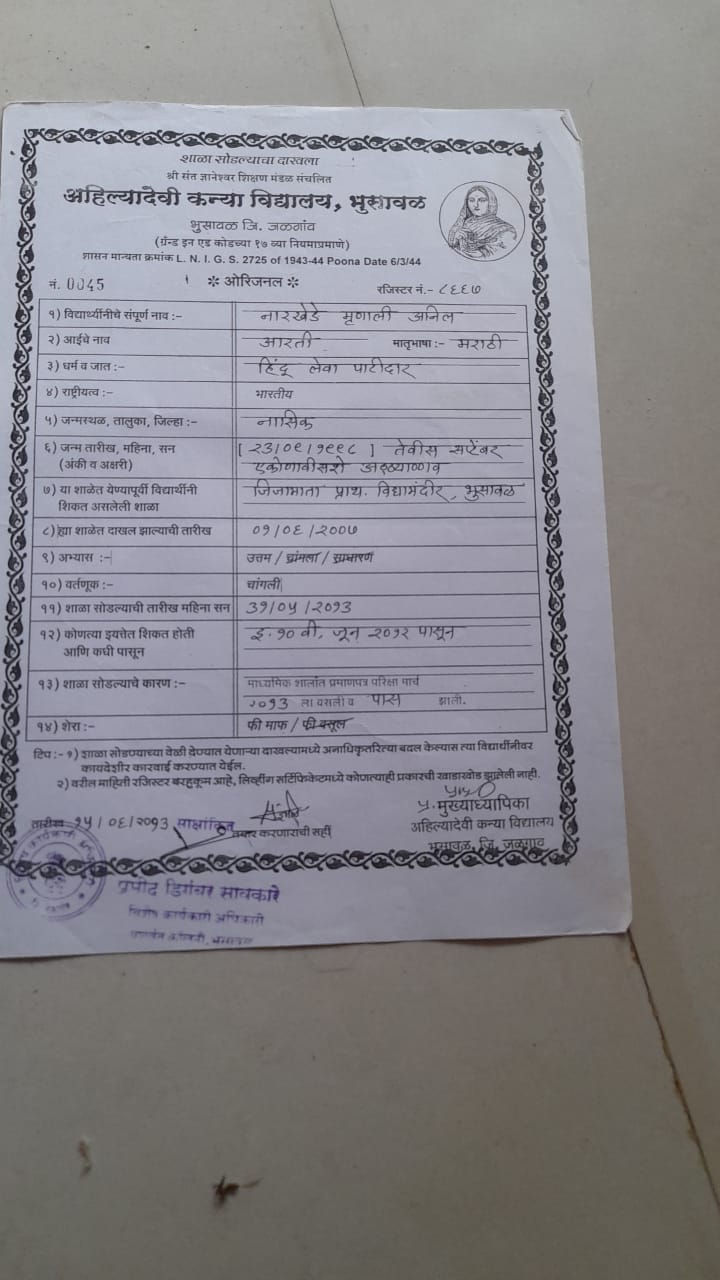 शाळा सोडल्याचा दाखला
श्री संत ज्ञानेश्वर शिक्षण मंडळ संचलित
अहिल्यादेवी कन्या विद्यालय, भुसावळ
भुसावळ जि. जळगांव
(ग्रॅन्ड इन एड कोडच्या १७ व्या नियमाप्रमाणे)
शासन मान्यता क्रमांक L. N. I. G. S. 2725 of 1943-44 Poona Date 6/3/44
नं. 0045 * ओरिजनल * रजिस्टर नं.- ८६६७
१) विद्यार्थीनीचे संपूर्ण नाव :- नारखेडे मृणाली अनिल
२) आईचे नाव आरती मातृभाषा :- मराठी
३) धर्म व जात :- हिंदू लेवा पाटीदार
४) राष्ट्रीयत्व :- भारतीय
५) जन्मस्थळ, तालुका, जिल्हा :- नासिक
६) जन्म तारीख, महिना, सन [ २३/०९/१९९८ ] तेवीस सप्टेंबर
(अंकी व अक्षरी) एकोणावीसशे अठ्ठ्याण्णव
७) या शाळेत येण्यापूर्वी विद्यार्थीनी जिजामाता प्राथ. विद्यामंदीर, भुसावळ
शिकत असलेली शाळा
८) ह्या शाळेत दाखल झाल्याची तारीख ०१/०६/२००७
९) अभ्यास :- उत्तम / चांगला / साधारण
१०) वर्तणूक :- चांगली
११) शाळा सोडल्याची तारीख महिना सन ३१/०५/२०१३
१२) कोणत्या इयत्तेत शिकत होती इ. १० वी, जून २०१२ पासून
आणि कधी पासून
१३) शाळा सोडल्याचे कारण :- माध्यमिक शालांत प्रमाणपत्र परिक्षा मार्च
२०१३ ला बसली व पास झाली.
१४) शेरा :- फी माफ / फी वसूल
टिप :- १) शाळा सोडण्याच्या वेळी देण्यात येणाऱ्या दाखल्यामध्ये अनाधिकृतरित्या बदल केल्यास त्या विद्यार्थीनीवर
कायदेशीर कारवाई करण्यात येईल.
२) वरील माहिती रजिस्टर बरहुकूम आहे, लिव्हींग सर्टिफिकेटमध्ये कोणत्याही प्रकारची खाडाखोड झालेली नाही.
प्र. मुख्याध्यापिका
तारीख १५/०६/२०१३ साक्षांकित तयार करणाराची सही अहिल्यादेवी कन्या विद्यालय
भुसावळ, जि. जळगाव
प्रमोद डिगंबर सावकारे
विशेष कार्यकारी अधिकारी